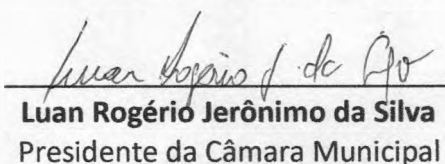 Luan Rogério J. da
Luan Rogério Jerônimo da Silva
Presidente da Câmara Municipal